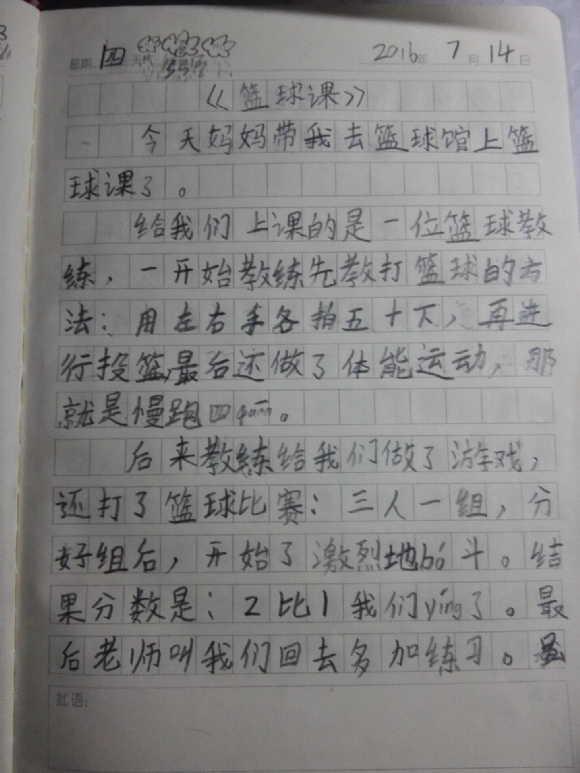 星期: 四 天气 2016年 7月 14日
《篮球课》
今天妈妈带我去篮球馆上篮
球课了。
给我们上课的是一位篮球教
练，一开始教练先教打篮球的方
法：用左右手各拍五十下，再进
行投篮最后还做了体能运动，那
就是慢跑四quān。
后来教练给我们做了游戏，
还打了篮球比赛：三人一组，分
好组后，开始了激烈地bó斗。结
果分数是：2比1我们yíng了。最
后老师叫我们回去多加练习。
批语：